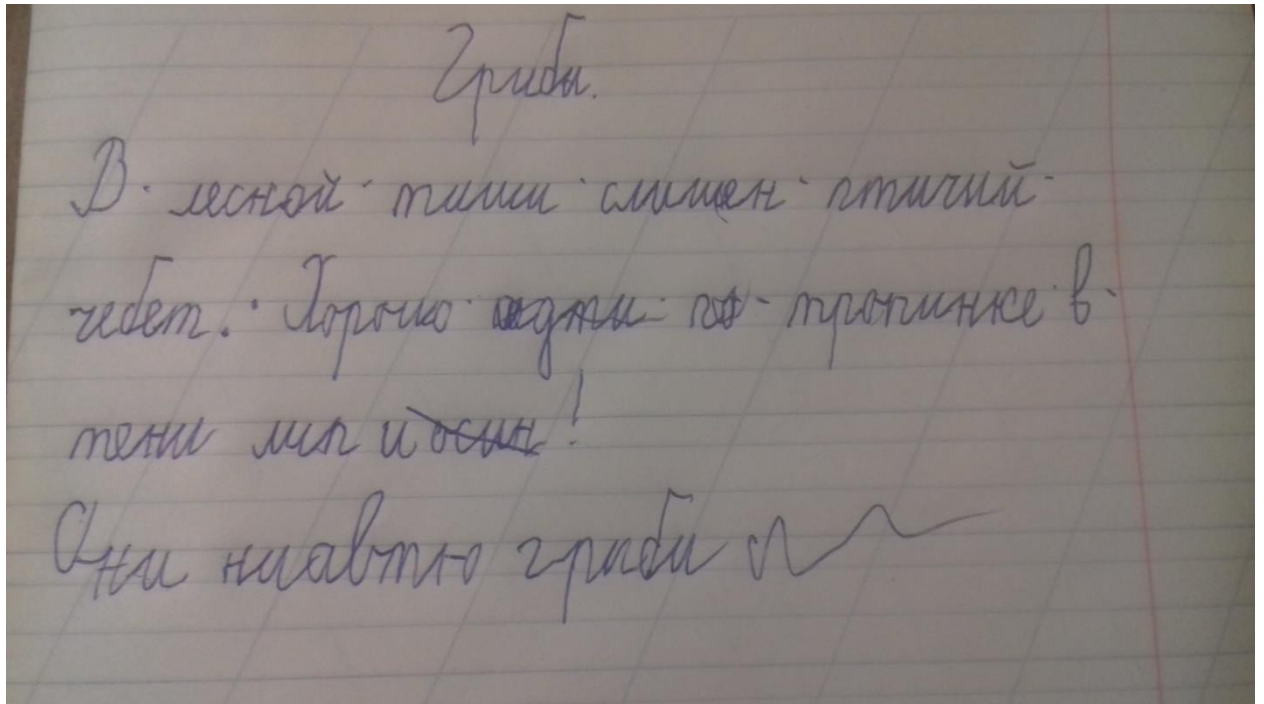 Грибы.
В лесной тиши слышен птичий
чебет. Хорошо идти по тропинке в
тени лип и осин!
Они грибы